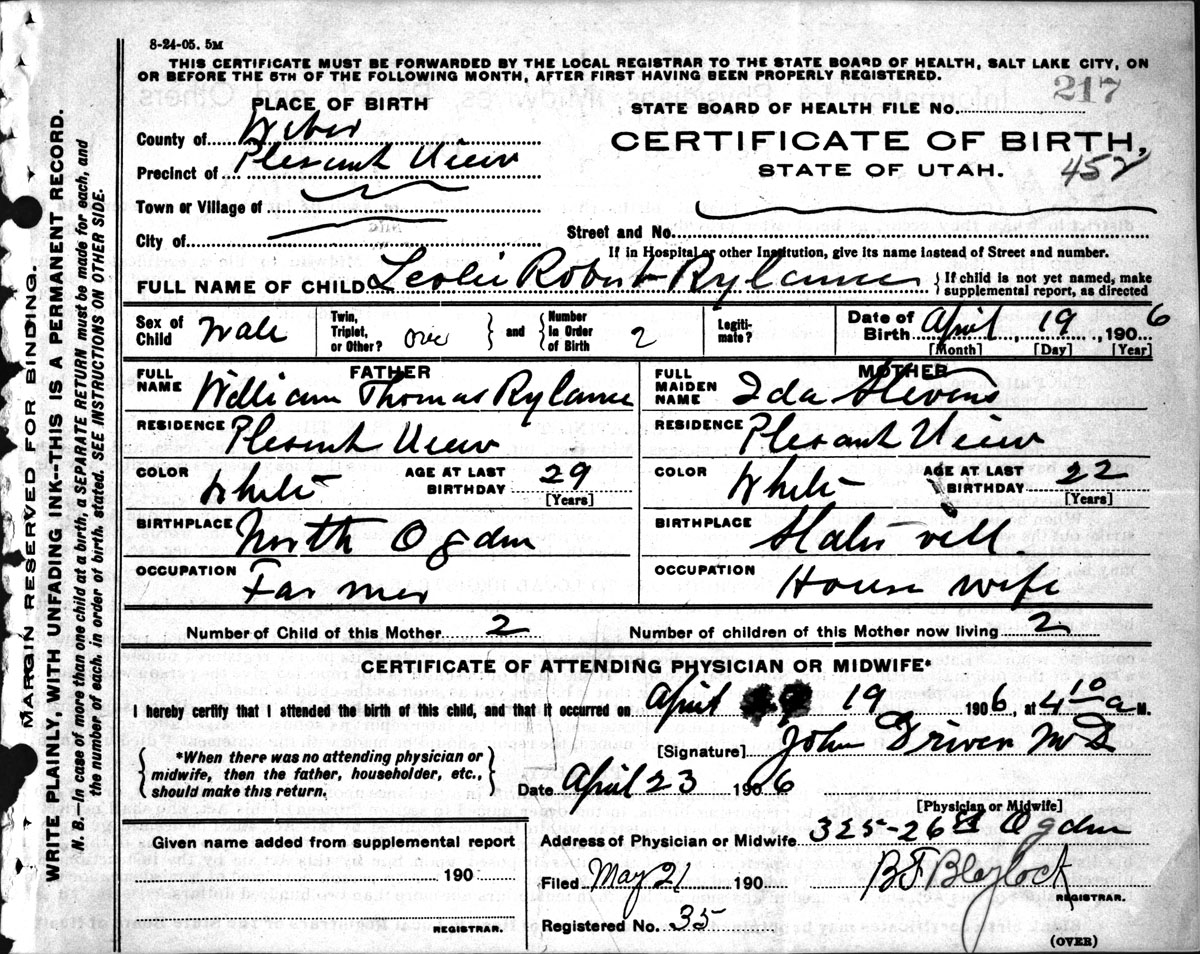 8-24-05. 5M
THIS CERTIFICATE MUST BE FORWARDED BY THE LOCAL REGISTRAR TO THE STATE BOARD OF HEALTH, SALT LAKE CITY, ON
OR BEFORE THE 5TH OF THE FOLLOWING MONTH, AFTER FIRST HAVING BEEN PROPERLY REGISTERED.
217
STATE BOARD OF HEALTH FILE NO.
CERTIFICATE OF BIRTH,
STATE OF UTAH. 452
PLACE OF BIRTH
County of Weber
Precinct of Plesant View
Town or Village of
City of
Street and No.
If in Hospital or other Institution, give its name instead of Street and number.
FULL NAME OF CHILD Leslie Robert Rylance { If child is not yet named, make
supplemental report, as directed
Sex of Child Male
Twin, Triplet, or Other? one } and { Number in Order of Birth 2
Legiti-mate?
Date of Birth April, 19, 1906
[Month] [Day] [Year]
FATHER
FULL NAME William Thomas Rylance
RESIDENCE Plesant View
COLOR White AGE AT LAST BIRTHDAY 29 [Years]
BIRTHPLACE North Ogden
OCCUPATION Farmer
MOTHER
FULL MAIDEN NAME Ida Stevens
RESIDENCE Plesant View
COLOR White AGE AT LAST BIRTHDAY 22 [Years]
BIRTHPLACE Slater vill.
OCCUPATION House wife
Number of Child of this Mother 2 Number of children of this Mother now living 2
CERTIFICATE OF ATTENDING PHYSICIAN OR MIDWIFE*
I hereby certify that I attended the birth of this child, and that it occurred on April 19 1906, at 4 10 a M.
[Signature] John Driver M D
{ *When there was no attending physician or
midwife, then the father, householder, etc.,
should make this return. }
Date April 23 1906
[Physician or Midwife]
Address of Physician or Midwife 325-26 St Ogden
Given name added from supplemental report
190
REGISTRAR.
Filed May 21 190 B F Blaylock
REGISTRAR.
Registered No. 35
(OVER)
MARGIN RESERVED FOR BINDING.
WRITE PLAINLY, WITH UNFADING INK--THIS IS A PERMANENT RECORD.
N. B.--In case of more than one child at a birth, a SEPARATE RETURN must be made for each, and
the number of each, in order of birth, stated. SEE INSTRUCTIONS ON OTHER SIDE.